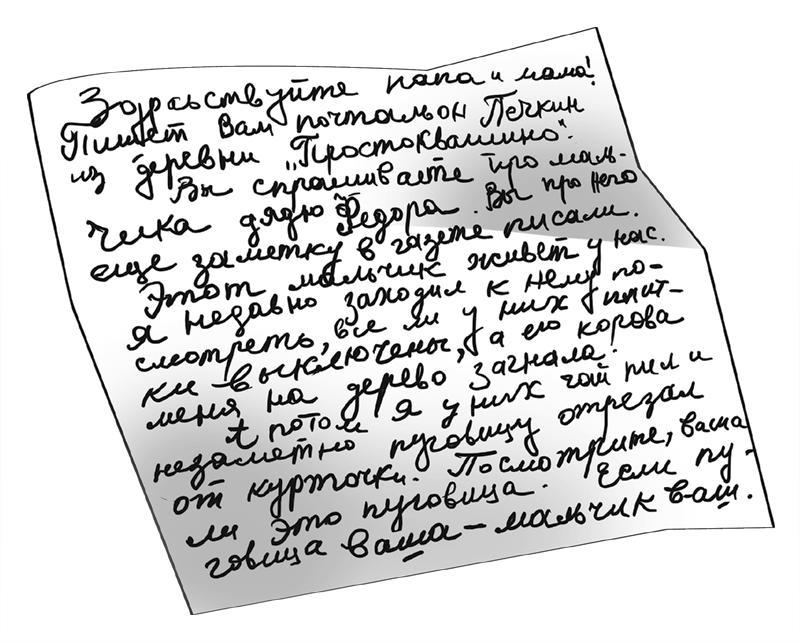 Здравствуйте папа и мама!
Пишет Вам почтальон Печкин
из деревни „Простоквашино".
Вы спрашиваете про маль-
чика дядю Фёдора. Вы про него
еще заметку в газете писали.
Этот мальчик живет у нас.
Я недавно заходил к нему по-
смотреть, все ли у них плит-
ки выключены, а его корова
меня на дерево загнала.
А потом я у них чай пил и
незаметно пуговицу отрезал
от курточки. Посмотрите, ваша
ли это пуговица. Если пу-
говица ваша - мальчик ваш.